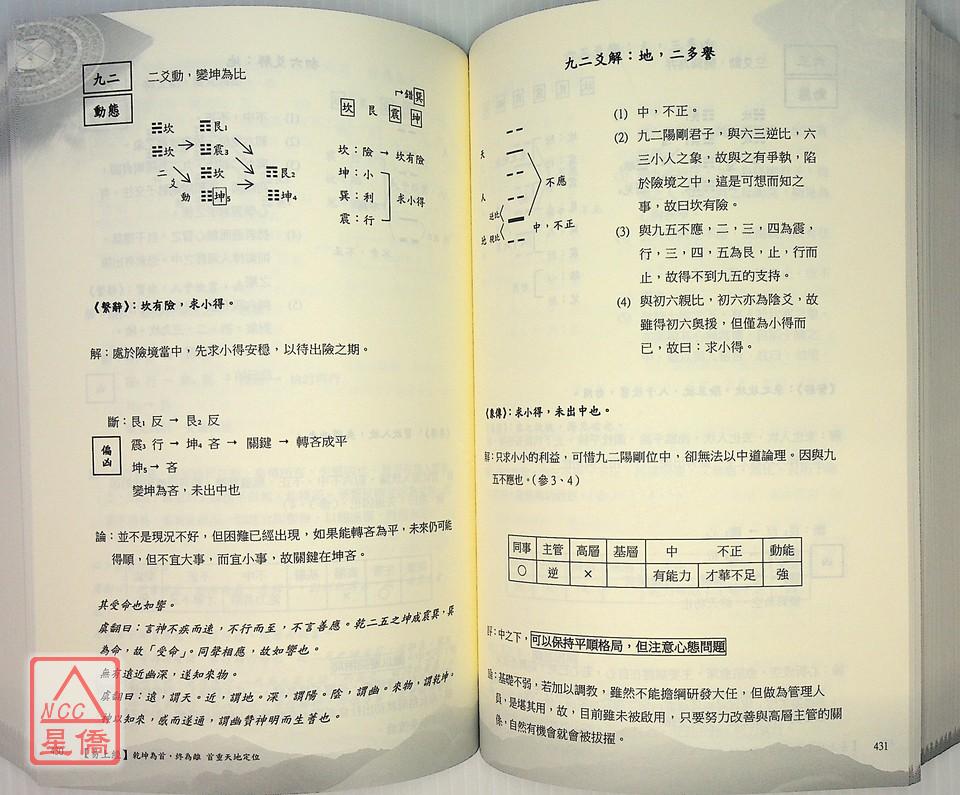 九二
動態
二爻動，變坤為比
┌→錯巽
坎 艮 震 坤
☵坎 ☶艮₁
☵坎 → ☳震₃
二爻動 ☵坎 ☶艮₂
☷坤₅ ☷坤₄
坎：險 → 坎有險
坤：小
巽：利 求小得
震：行
《繫辭》：坎有險，求小得。
解：處於險境當中，先求小得安穩，以待出險之期。
斷：艮₁ 反 → 艮₂ 反
偏凶
震₃ 行 → 坤₄ 吝 → 關鍵 → 轉吝成平
坤₅ → 吝
變坤為吝，未出中也
論：並不是現況不好，但困難已經出現，如果能轉吝為平，未來仍可能
得順，但不宜大事，而宜小事，故關鍵在坤吝。
其受命也如嚮。
虞翻曰：言神不疾而速，不行而至，不言善應。乾二五之坤成震巽，巽
為命，故「受命」。同聲相應，故如嚮也。
無有遠近幽深，遂知來物。
虞翻曰：遠，謂天。近，謂地。深，謂陽。陰，謂幽。來物，謂乾坤。
神以知來，感而遂通，謂幽贊神明而生蓍也。
430 【易上經】乾坤為首，終為離 首重天地定位
NCC
星僑
九二爻解：地，二多譽
天
人
地
逆比
親比
不應
中，不正
(1) 中，不正。
(2) 九二陽剛君子，與六三逆比，六
三小人之象，故與之有爭執，陷
於險境之中，這是可想而知之
事，故曰坎有險。
(3) 與九五不應，二，三，四為震，
行，三，四，五為艮，止，行而
止，故得不到九五的支持。
(4) 與初六親比，初六亦為陰爻，故
雖得初六奧援，但僅為小得而
已，故曰：求小得。
《象傳》：求小得，未出中也。
解：只求小小的利益，可惜九二陽剛位中，卻無法以中道論理。因與九
五不應也。（參3、4）
同事 主管 高層 基層 中 不正 動能
○ 逆 × 有能力 才華不足 強
評：中之下，可以保持平順格局，但注意心態問題
論：基礎不弱，若加以調教，雖然不能擔綱研發大任，但做為管理人
員，是堪其用，故，目前雖未被啟用，只要努力改善與高層主管的關
係，自然有機會就會被拔擢。
431